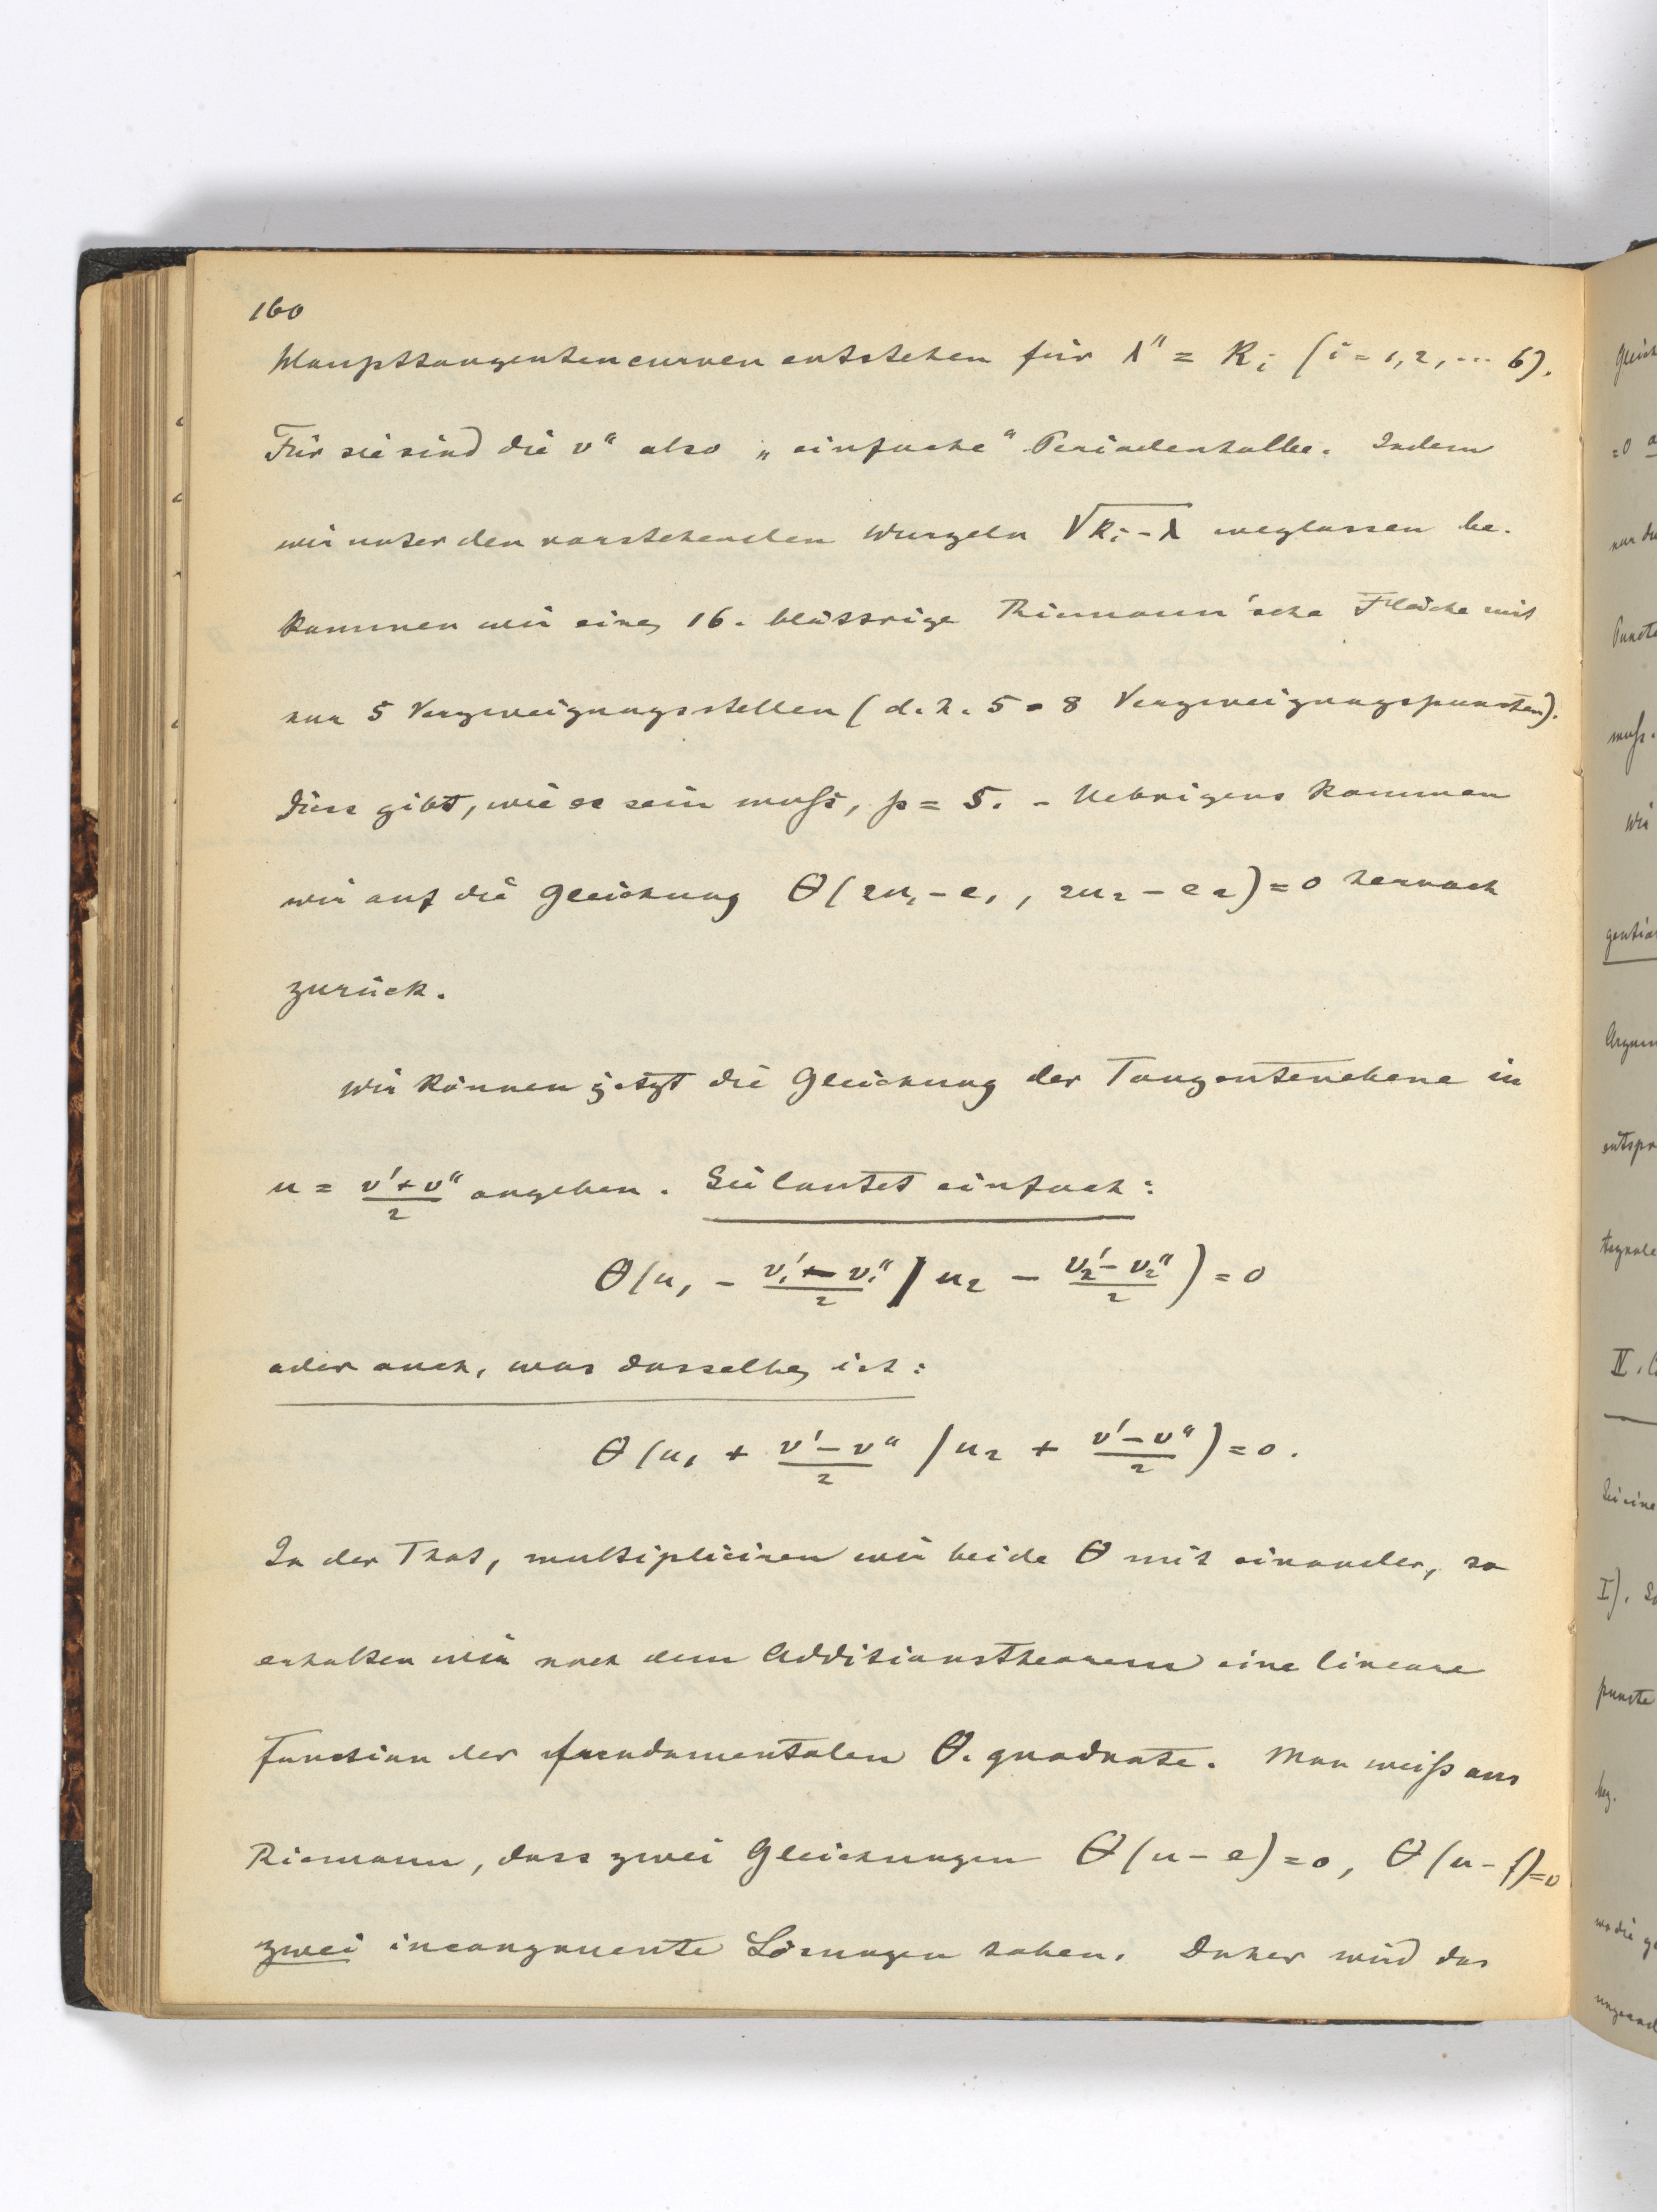 160
Haupttangentencurven entstehen für λ" = K_i (i = 1, 2, ... 6).
Für sie sind die v" also „einfache" Periodenhalbe. Indem
wir unter den vorstehenden Wurzeln √(K_i - λ) weglassen be-
kommen wir eine 16-blättrige Riemann'sche Fläche mit
nur 5 Verzweigungsstellen (d. h. 5 · 8 Verzweigungspuncten).
Dies gibt, wie es sein muß, p = 5. - Uebrigens kommen
wir auf die Gleichung θ(2u_1 - e_1, 2u_2 - e_2) = 0 hernach
zurück.
Wir können jetzt die Gleichung der Tangentenebene in
u = (v' + v")/2 angeben. Sie lautet einfach:
θ(u_1 - (v_1' - v_1")/2 / u_2 - (v_2' - v_2")/2) = 0
oder auch, was dasselbe ist:
θ(u_1 + (v' - v")/2 / u_2 + (v' - v")/2) = 0.
In der That, multipliciren wir beide θ mit einander, so
erhalten wir nach dem Additionstheorem eine lineare
Function der fundamentalen θ-quadrate. Man weiß aus
Riemann, dass zwei Gleichungen θ(u - e) = 0, θ(u - f) = 0
zwei incongruente Lösungen haben. Daher wird das